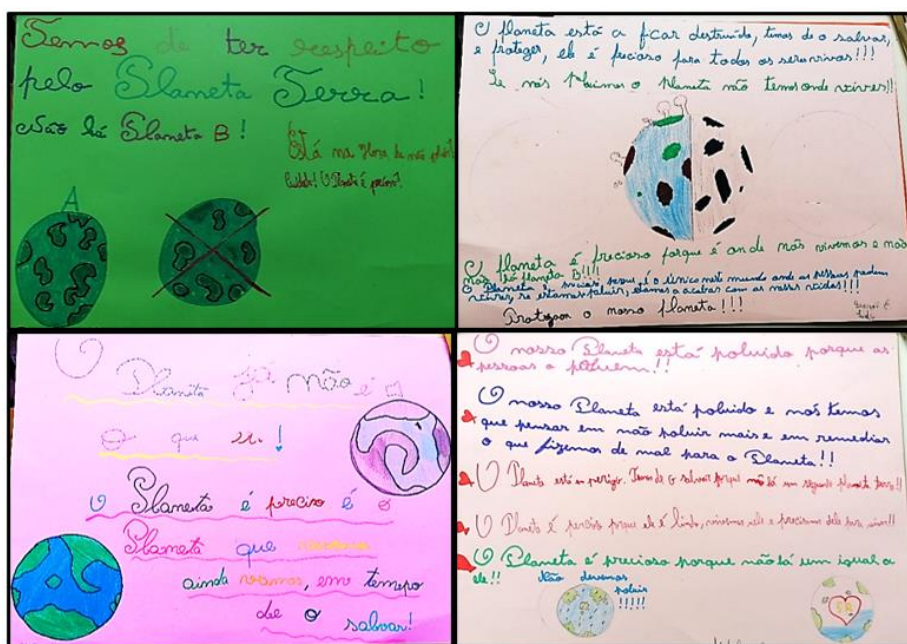 Temos de ter respeito
pelo Planeta Terra!
Não há Planeta B!
Está na Hora de não poluir!
Cuidado! O Planeta é
A
O planeta está a ficar destruido, temos de o salvar,
e proteger, ele é precioso para todos os seres vivos!!!
Se nós Poluimos o Planeta não temos onde viver!!
O planeta é precioso porque é onde nós vivemos e mas
não há planeta B!!!!
O Planeta é precioso porque é o único neste mundo onde as pessoas podem
viver, se estamos poluir, vamos a acabar com as nossas vidas!!!
Protejam o nosso planeta!!!
O
Planeta já não é
o que era!
O Planeta é preciso é o
Planeta que
ainda vamos, em tempo
de o salvar!
O nosso Planeta está poluido porque as
pessoas o poluem!!
O nosso Planeta está poluido e nós temos
que pensar em não poluir mais e em remediar
o que fizemos de mal para o Planeta!!
O Planeta está em perigo. Temos de o salvar porque não há um segundo planeta terra!!
O Planeta é precioso porque ele é lindo, vivemos nele e precisamos dele para viver!!
O Planeta é precioso porque não há um igual a
ele!!
Não devemos
poluir
!!!!!